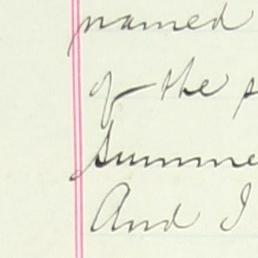 named
of the
Summe
And I